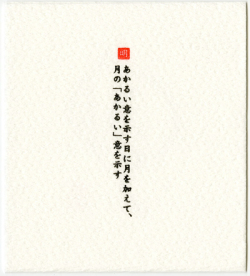 あかるい意を示す日に月を加えて、
月の「あかるい」意を示す